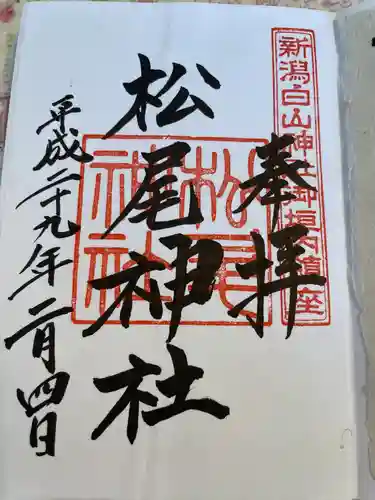 新潟白山神社御垣内鎮座
奉拝
松尾神社
松尾神社
平成二十九年二月四日